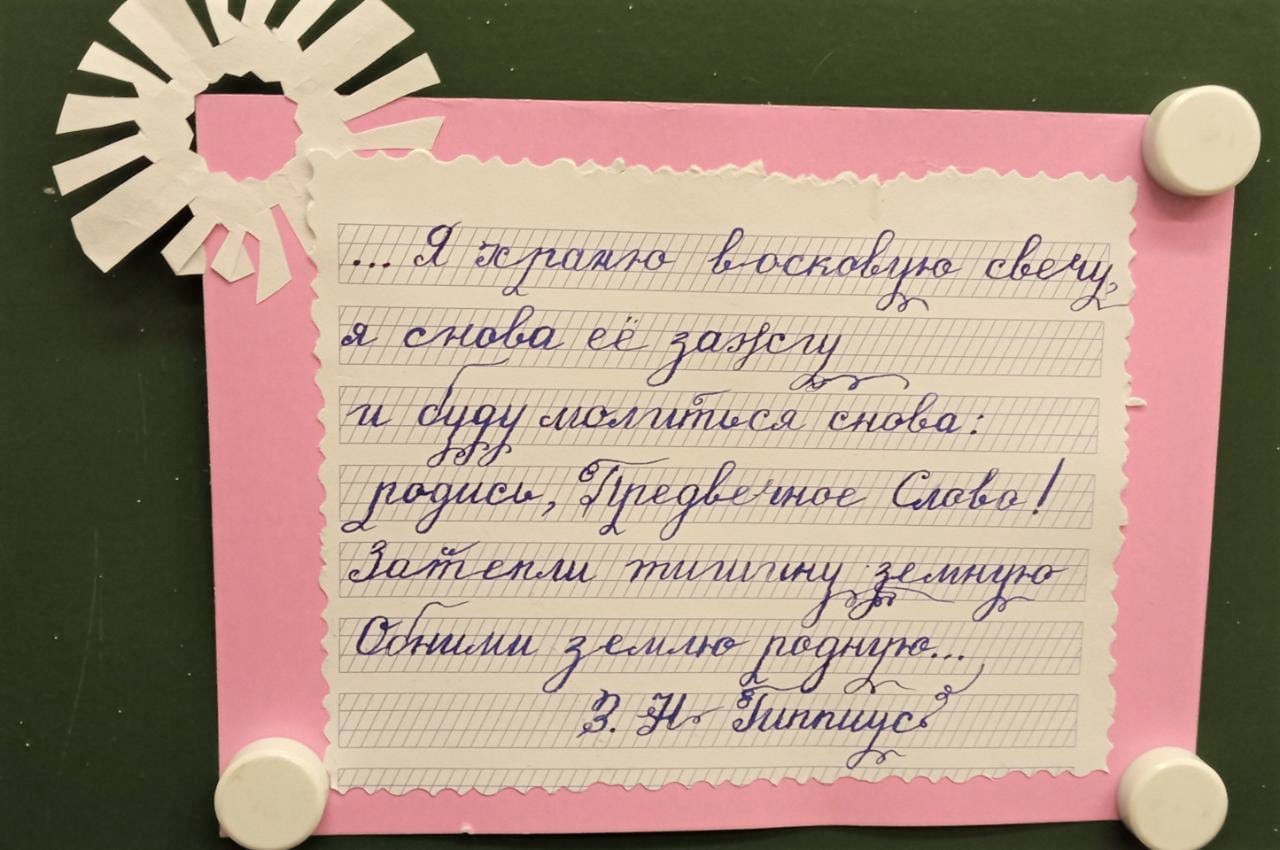 ... Я храню восковую свечу,
я снова её зажгу
и буду молиться снова:
родись, Предвечное Слово!
Затепли тишину земную
Обними землю родную...
З. Н. Гиппиус